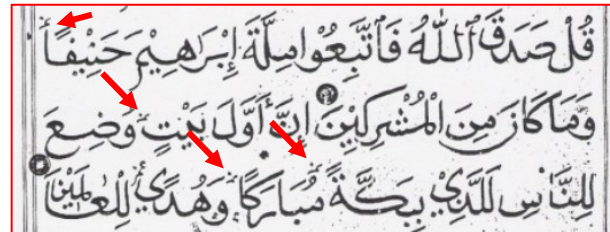 قُلْ صَدَقَ اللَّهُ فَاتَّبِعُوا مِلَّةَ إِبْرَاهِيمَ حَنِيفًا
وَمَا كَانَ مِنَ الْمُشْرِكِينَ إِنَّ أَوَّلَ بَيْتٍ وُضِعَ
لِلنَّاسِ لَلَّذِي بِبَكَّةَ مُبَارَكًا وَهُدًى لِلْعَالَمِينَ